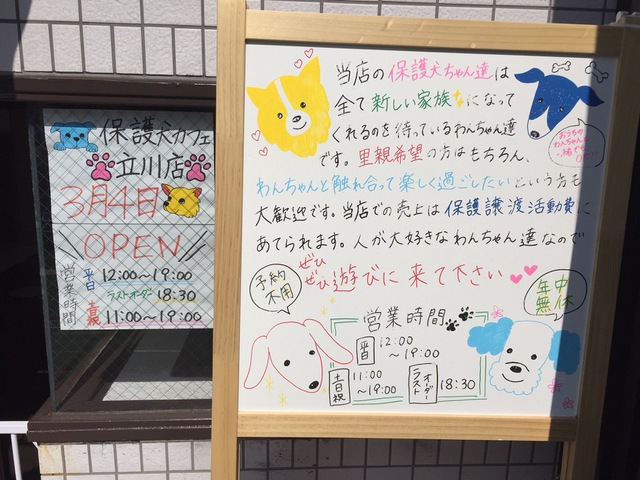 保護犬カフェ
立川店
3月4日
OPEN
営業時間
平日 12:00〜19:00
ラストオーダー 18:30
11:00〜19:00
当店の保護犬ちゃん達は
全て新しい家族になって
くれるのを待っているわんちゃん達
です。里親希望の方はもちろん、
わんちゃんと触れ合って楽しく過ごしたいという方も
大歓迎です。当店での売上は保護譲渡活動費に
あてられます。人が大好きなわんちゃん達なので
ぜひ
ぜひ遊びに来て下さい
おうちの
わんちゃんも
予約
不用
年中
無休
営業時間
平日 12:00
〜19:00
土日祝 11:00
〜19:00
ラスト
オーダー 18:30